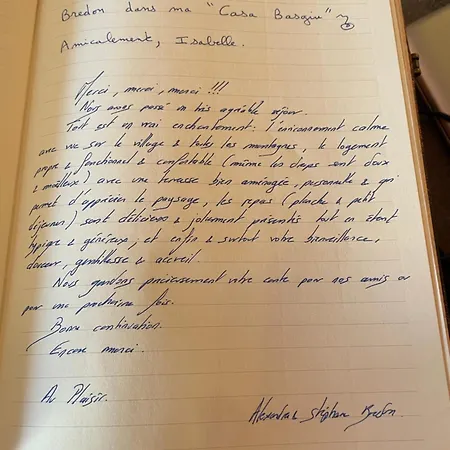 Bredon dans ma "Casa Basgiu"
Amicalement, Isabelle.
Merci, merci, merci !!!
Nous avons passé un très agréable séjour.
Tout est un vrai enchantement : l'environnement calme
avec vue sur le village & toutes les montagnes, le logement
propre & fonctionnel & confortable (même les draps sont doux
& moelleux) avec une terrasse bien aménagée, personnelle & qui
permet d'apprécier le paysage, les repas (planche & petit
déjeuner) sont délicieux & joliment présentés tout en étant
typiques & généreux, et enfin & surtout votre bienveillance,
douceur, gentillesse & accueil.
Nous gardons précieusement votre carte pour nos amis ou
pour une prochaine fois.
Bonne continuation.
Encore merci.
Au Plaisir.
Alexandra & Stéphane Bredon